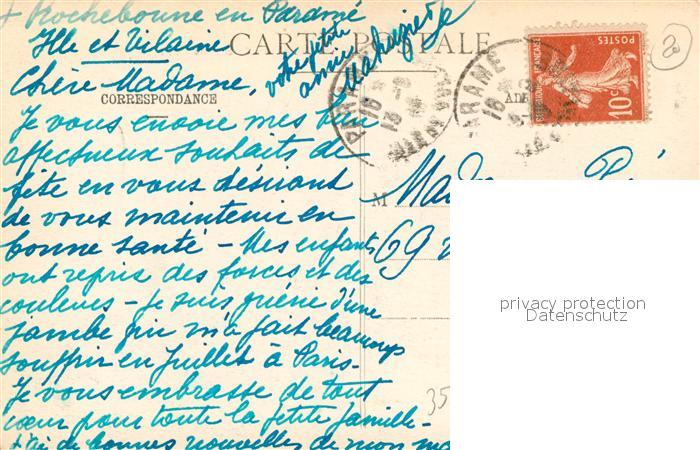 + Rochebonne en Paramé
Ille et Vilaine
CARTE POSTALE
votre petite
amie
Chère Madame,
CORRESPONDANCE
Je vous envoie mes bien
affectueux souhaits de
fête en vous désirant
de vous maintenir en
bonne santé - Mes enfants
ont repris des forces et des
couleurs - je suis guérie d'une
jambe qui m'a fait beaucoup
souffrir en Juillet à Paris -
Je vous embrasse de tout
cœur pour toute la petite famille -
J'ai de bonnes nouvelles de mon
PARAMÉ
18
PARAMÉ
18
POSTES
10c
20
M
69
35
privacy protection
Datenschutz